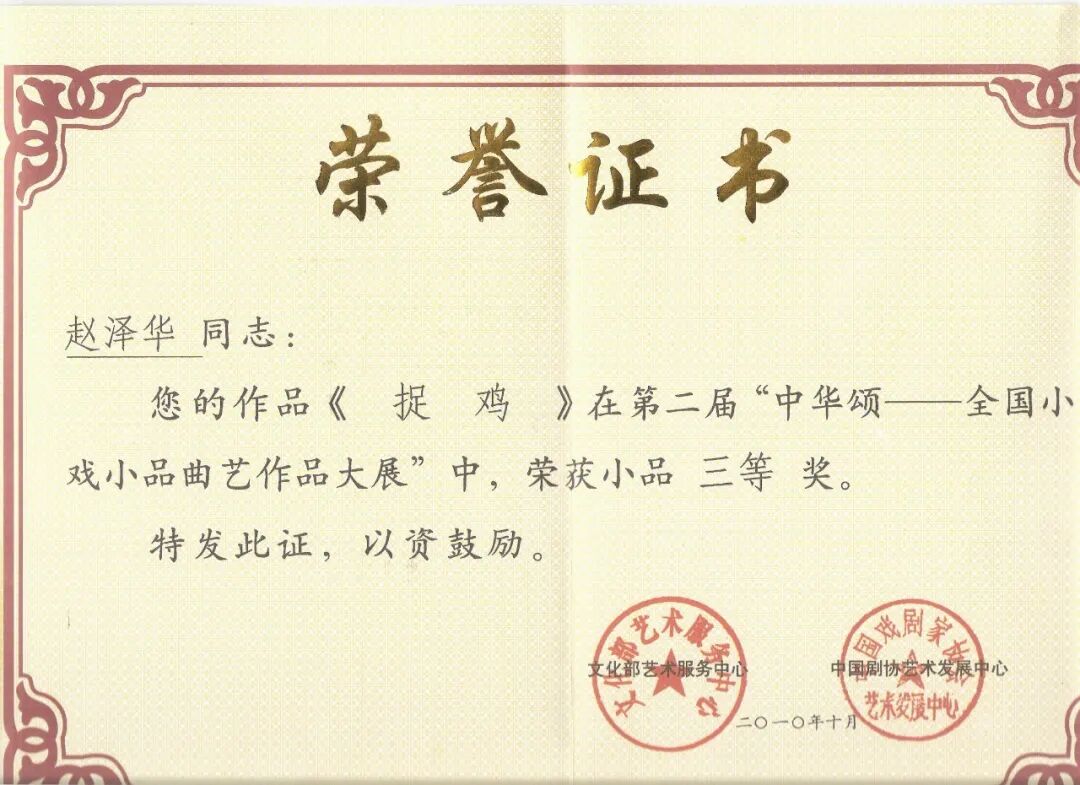 荣誉证书
赵泽华 同志：
您的作品《 捉 鸡 》在第二届“中华颂——全国小
戏小品曲艺作品大展”中，荣获小品 三等 奖。
特发此证，以资鼓励。
文化部艺术服务中心
文化部艺术服务中心
中国戏剧家协会
艺术发展中心
中国剧协艺术发展中心
二〇一〇年十月